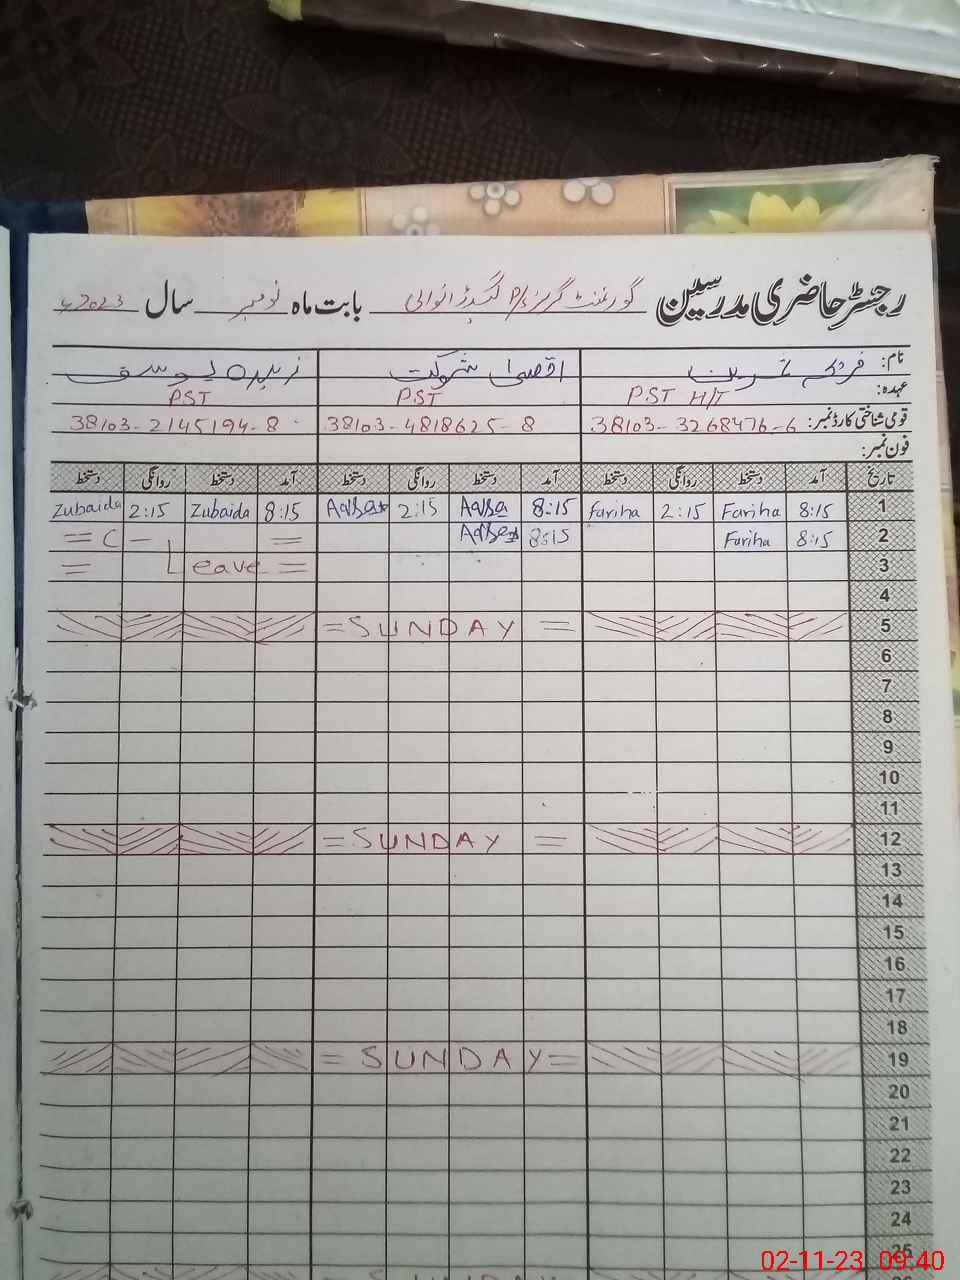 رجسٹر حاضری مدرسین گورنمنٹ گرلز P/S بابت ماہ نومبر سال 2023ء
نام: اقصیٰ شوکت زبیدہ یوسف
عہدہ: PST H/T PST PST
قومی شناختی کارڈ نمبر: 38103-3268476-6 38103-4818625-8 38103-2145194-8
فون نمبر:
تاریخ آمد دستخط روانگی دستخط آمد دستخط روانگی دستخط آمد دستخط روانگی دستخط
1 8:15 Fariha 2:15 Fariha 8:15 Aqsa 2:15 Aqsa 8:15 Zubaida 2:15 Zubaida
2 8:15 Fariha 8:15 Aqsa = C - =
3 = Leave =
4
5 = SUNDAY =
6
7
8
9
10
11
12 = SUNDAY =
13
14
15
16
17
18
19 = SUNDAY =
20
21
22
23
24
25
02-11-23 09:40